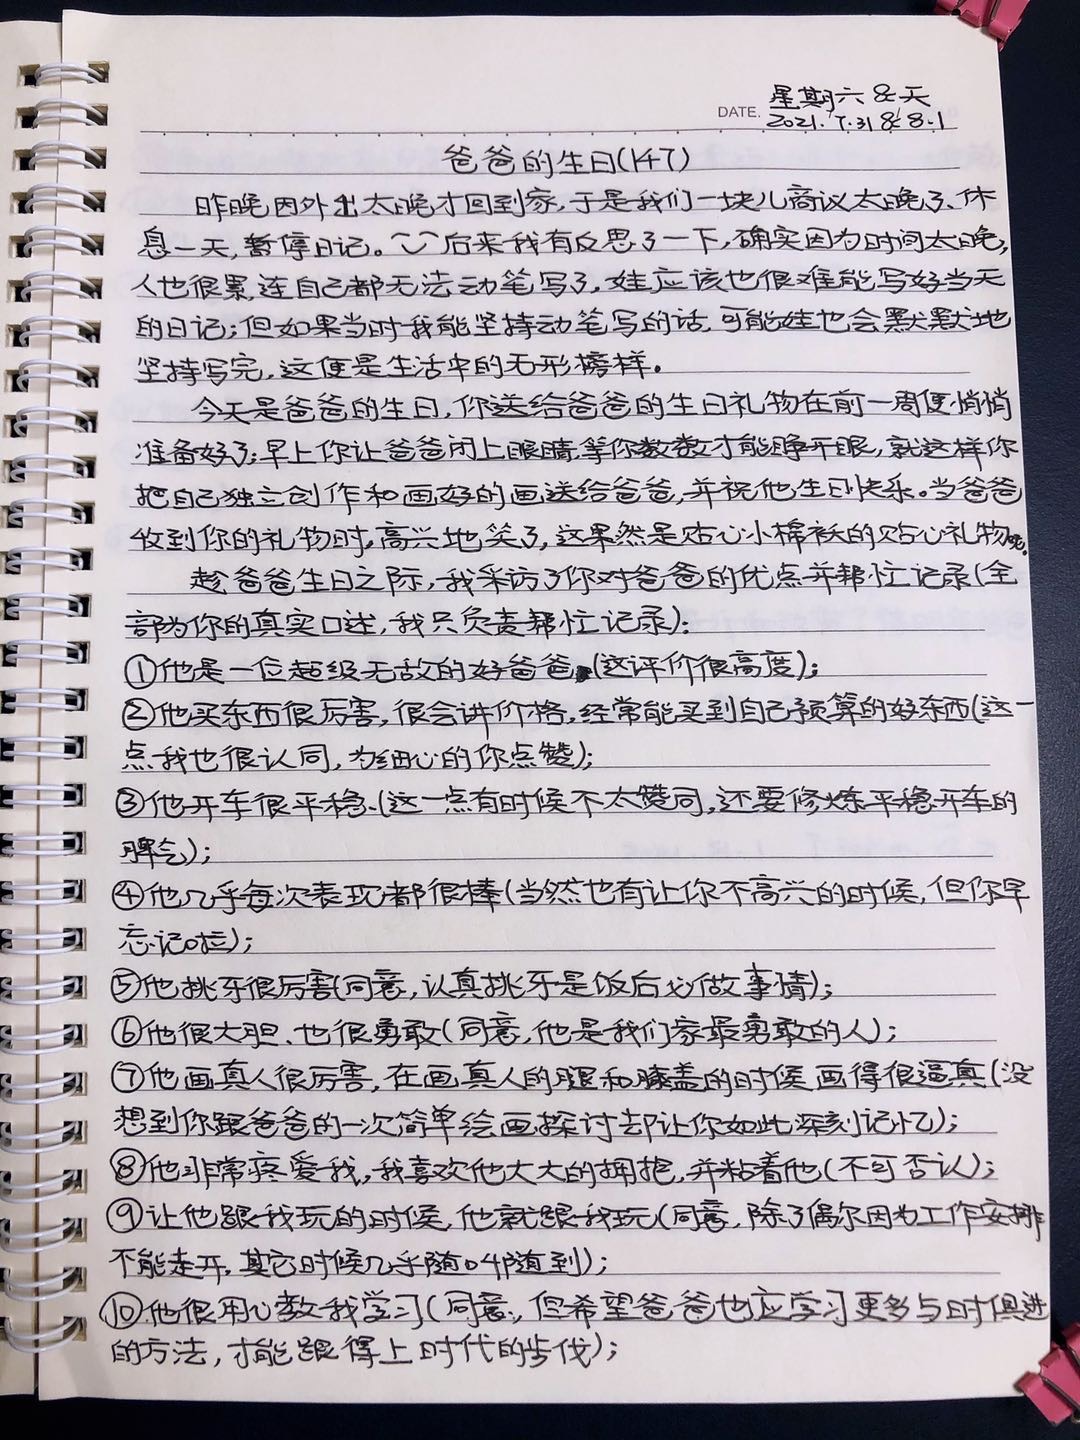 星期六&天
DATE. 2021.7.31&8.1
爸爸的生日(147)
昨晚因外出太晚才回到家,于是我们一块儿商议太晚了、休
息一天,暂停日记。后来我有反思了一下,确实因为时间太晚,
人也很累,连自己都无法动笔写了,娃应该也很难能写好当天
的日记;但如果当时我能坚持动笔写的话,可能娃也会默默地
坚持写完,这便是生活中的无形榜样。
今天是爸爸的生日,你送给爸爸的生日礼物在前一周便悄悄
准备好了;早上你让爸爸闭上眼睛,等你数数才能睁开眼,就这样你
把自己独立创作和画好的画送给爸爸,并祝他生日快乐。当爸爸
收到你的礼物时,高兴地笑了,这果然是贴心小棉袄的贴心礼物呢。
趁爸爸生日之际,我采访了你对爸爸的优点并帮忙记录(全
部为你的真实口述,我只负责帮忙记录):
①他是一位超级无敌的好爸爸(这评价很高度);
②他买东西很厉害,很会讲价格,经常能买到自己预算的好东西(这一
点我也很认同,为细心的你点赞);
③他开车很平稳.(这一点有时候不太赞同,还要修炼平稳开车的
脾气);
④他几乎每次表现都很棒(当然也有让你不高兴的时候,但你早
忘记啦);
⑤他挑牙很厉害(同意,认真挑牙是饭后必做事情);
⑥他很大胆、也很勇敢(同意,他是我们家最勇敢的人);
⑦他画真人很厉害,在画真人的腿和膝盖的时候,画得很逼真(没
想到你跟爸爸的一次简单绘画探讨却让你如此深刻记忆);
⑧他非常疼爱我,我喜欢他大大的拥抱,并粘着他(不可否认);
⑨让他跟我玩的时候,他就跟我玩(同意,除了偶尔因为工作安排
不能走开,其它时候几乎随叫随到);
⑩他很用心教我学习(同意,但希望爸爸也应学习更多与时俱进
的方法,才能跟得上时代的步伐);